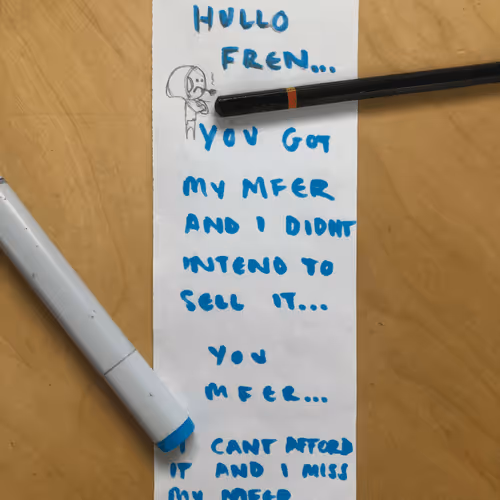 HULLO
FREN...
YOU GOT
MY MFER
AND I DIDNT
INTEND TO
SELL IT...
YOU
MFER...
I CANT AFFORD
IT AND I MISS
MY MFER